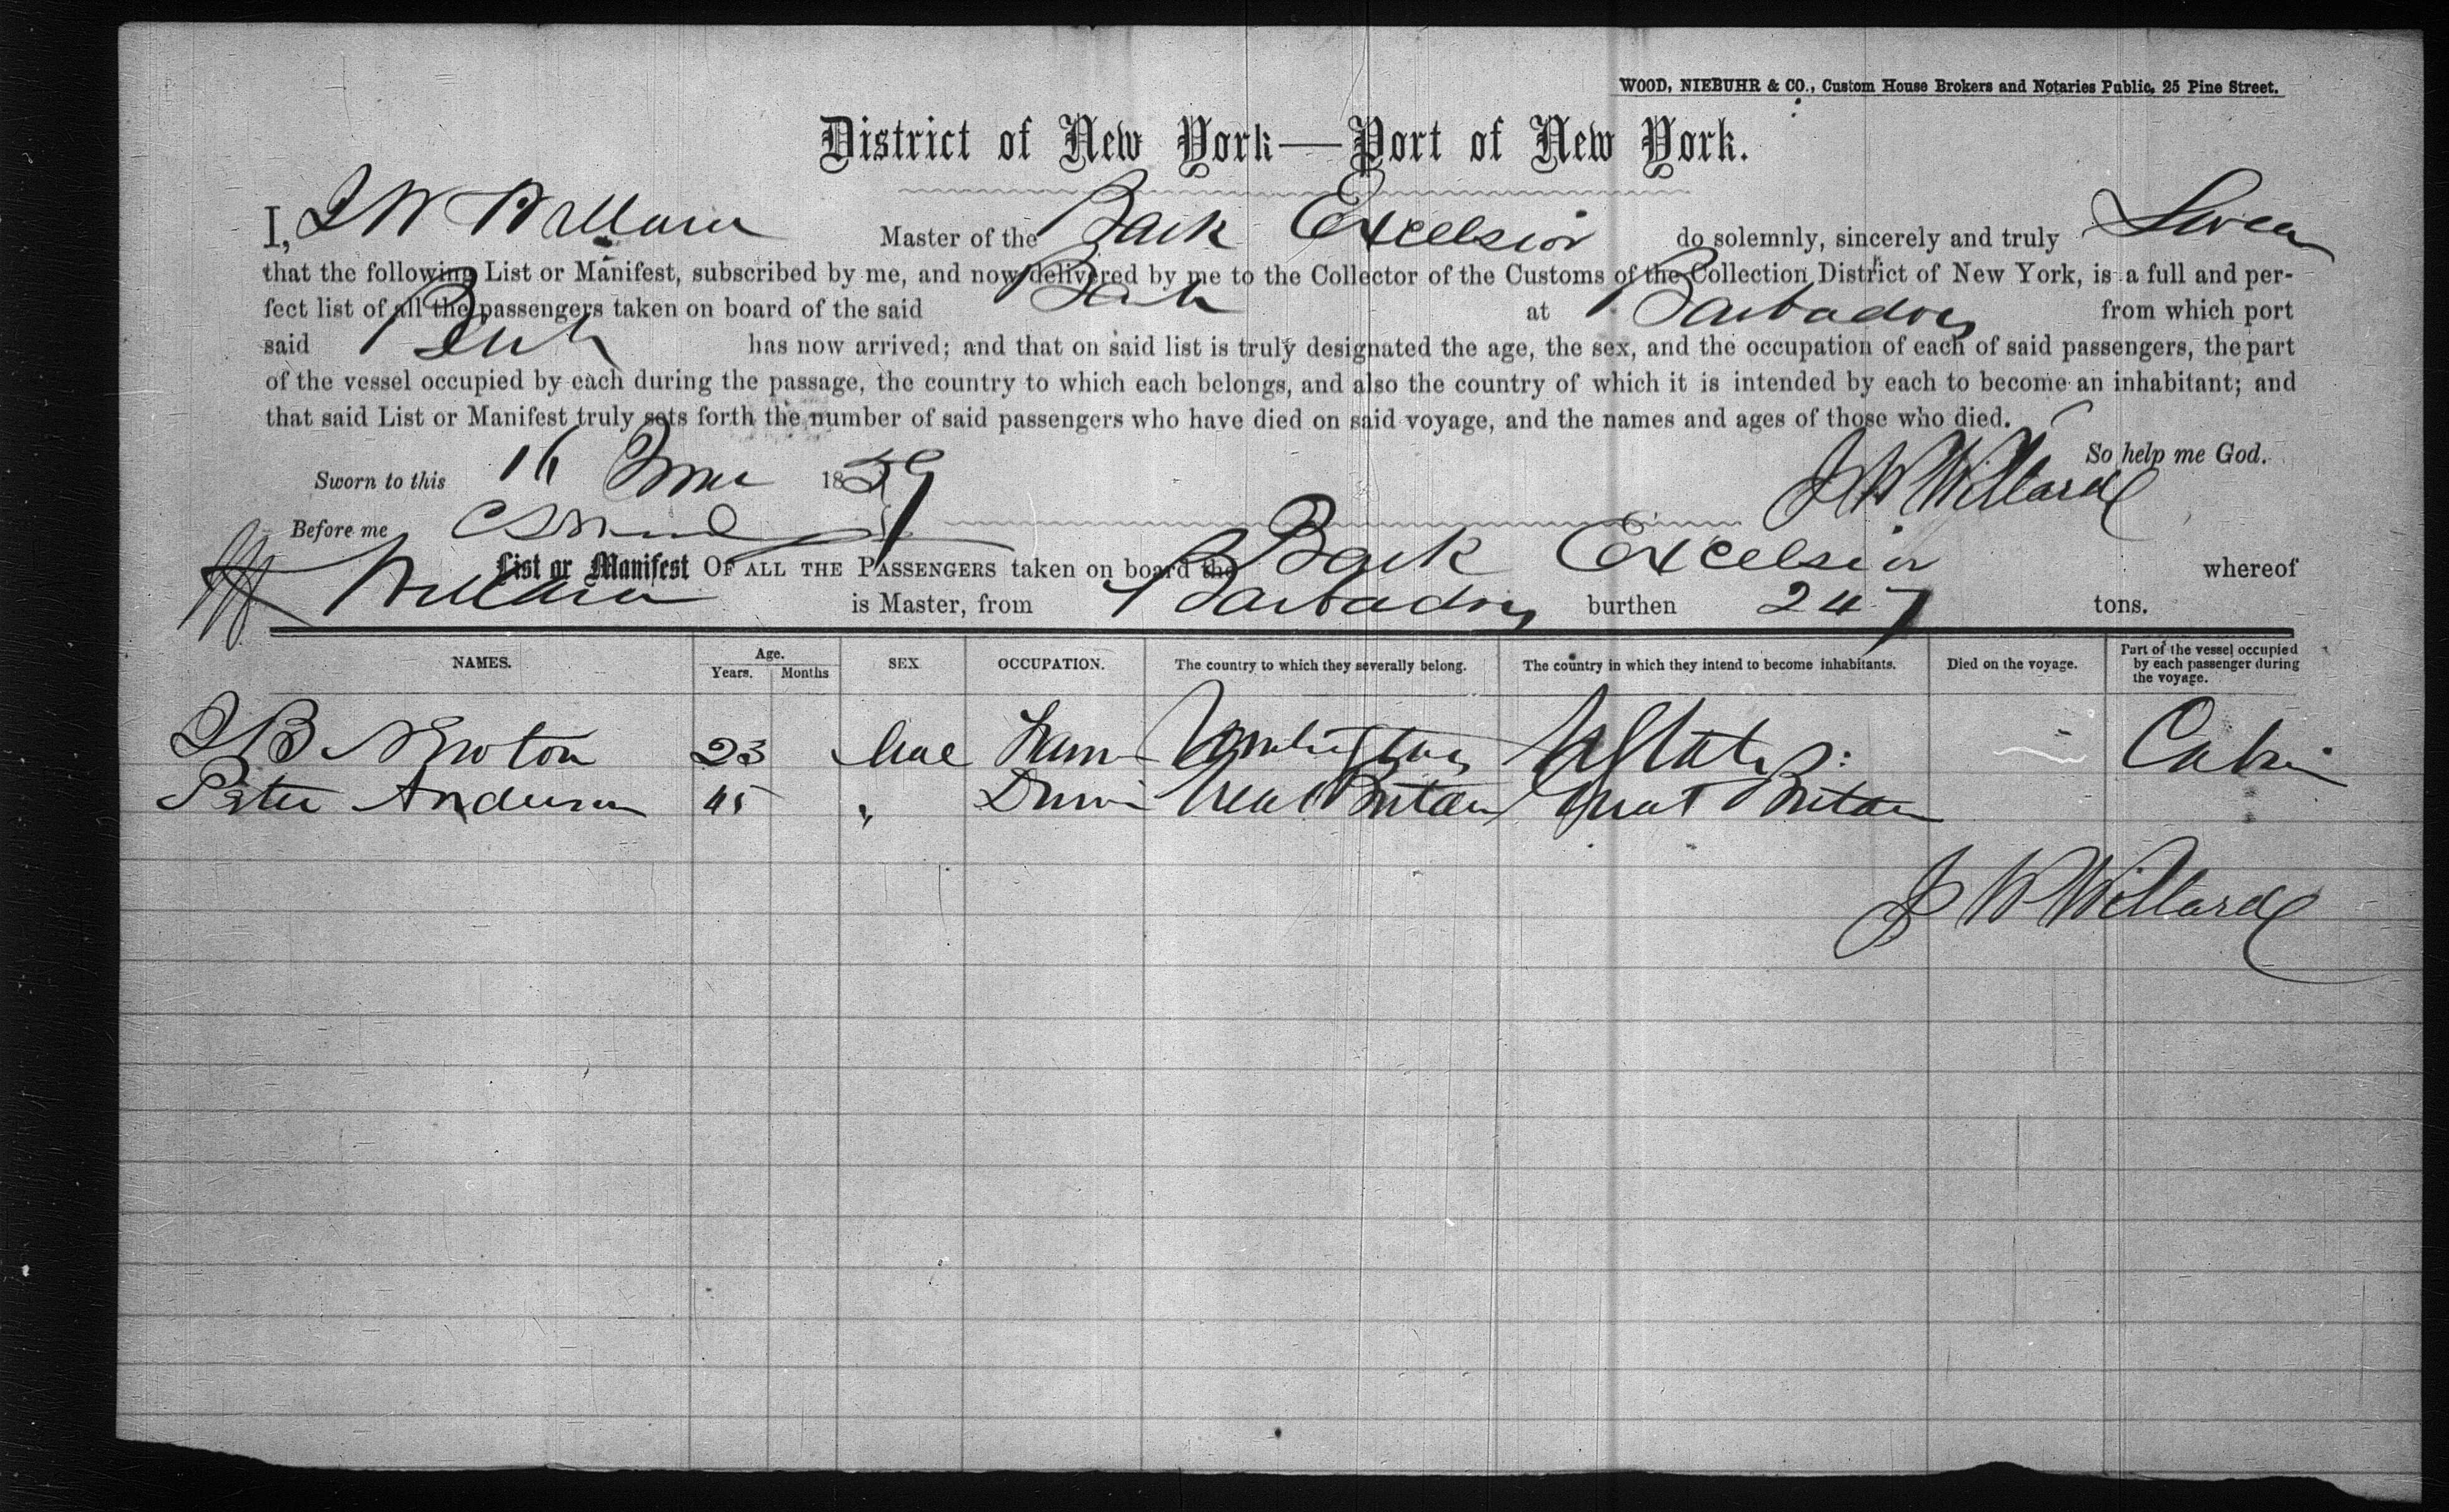 WOOD, NIEBUHR & CO., Custom House Brokers and Notaries Public, 25 Pine Street.
District of New York—Port of New York.
I, J W Willard Master of the Bark Excelsior do solemnly, sincerely and truly Swear
that the following List or Manifest, subscribed by me, and now delivered by me to the Collector of the Customs of the Collection District of New York, is a full and per-
fect list of all the passengers taken on board of the said Bark at Barbadoes from which port
said Bark has now arrived; and that on said list is truly designated the age, the sex, and the occupation of each of said passengers, the part
of the vessel occupied by each during the passage, the country to which each belongs, and also the country of which it is intended by each to become an inhabitant; and
that said List or Manifest truly sets forth the number of said passengers who have died on said voyage, and the names and ages of those who died.
So help me God.
Sworn to this 16 June 1859 J W Willard
Before me
List or Manifest OF ALL THE PASSENGERS taken on board the Bark Excelsior whereof
Willard is Master, from Barbadoes burthen 247 tons.
NAMES. Age. Years. Months SEX OCCUPATION. The country to which they severally belong. The country in which they intend to become inhabitants. Died on the voyage. Part of the vessel occupied by each passenger during the voyage.
J B Newton 23 Male U States Cabin
Peter Anderson 45 " Great Britain Great Britain
J W Willard